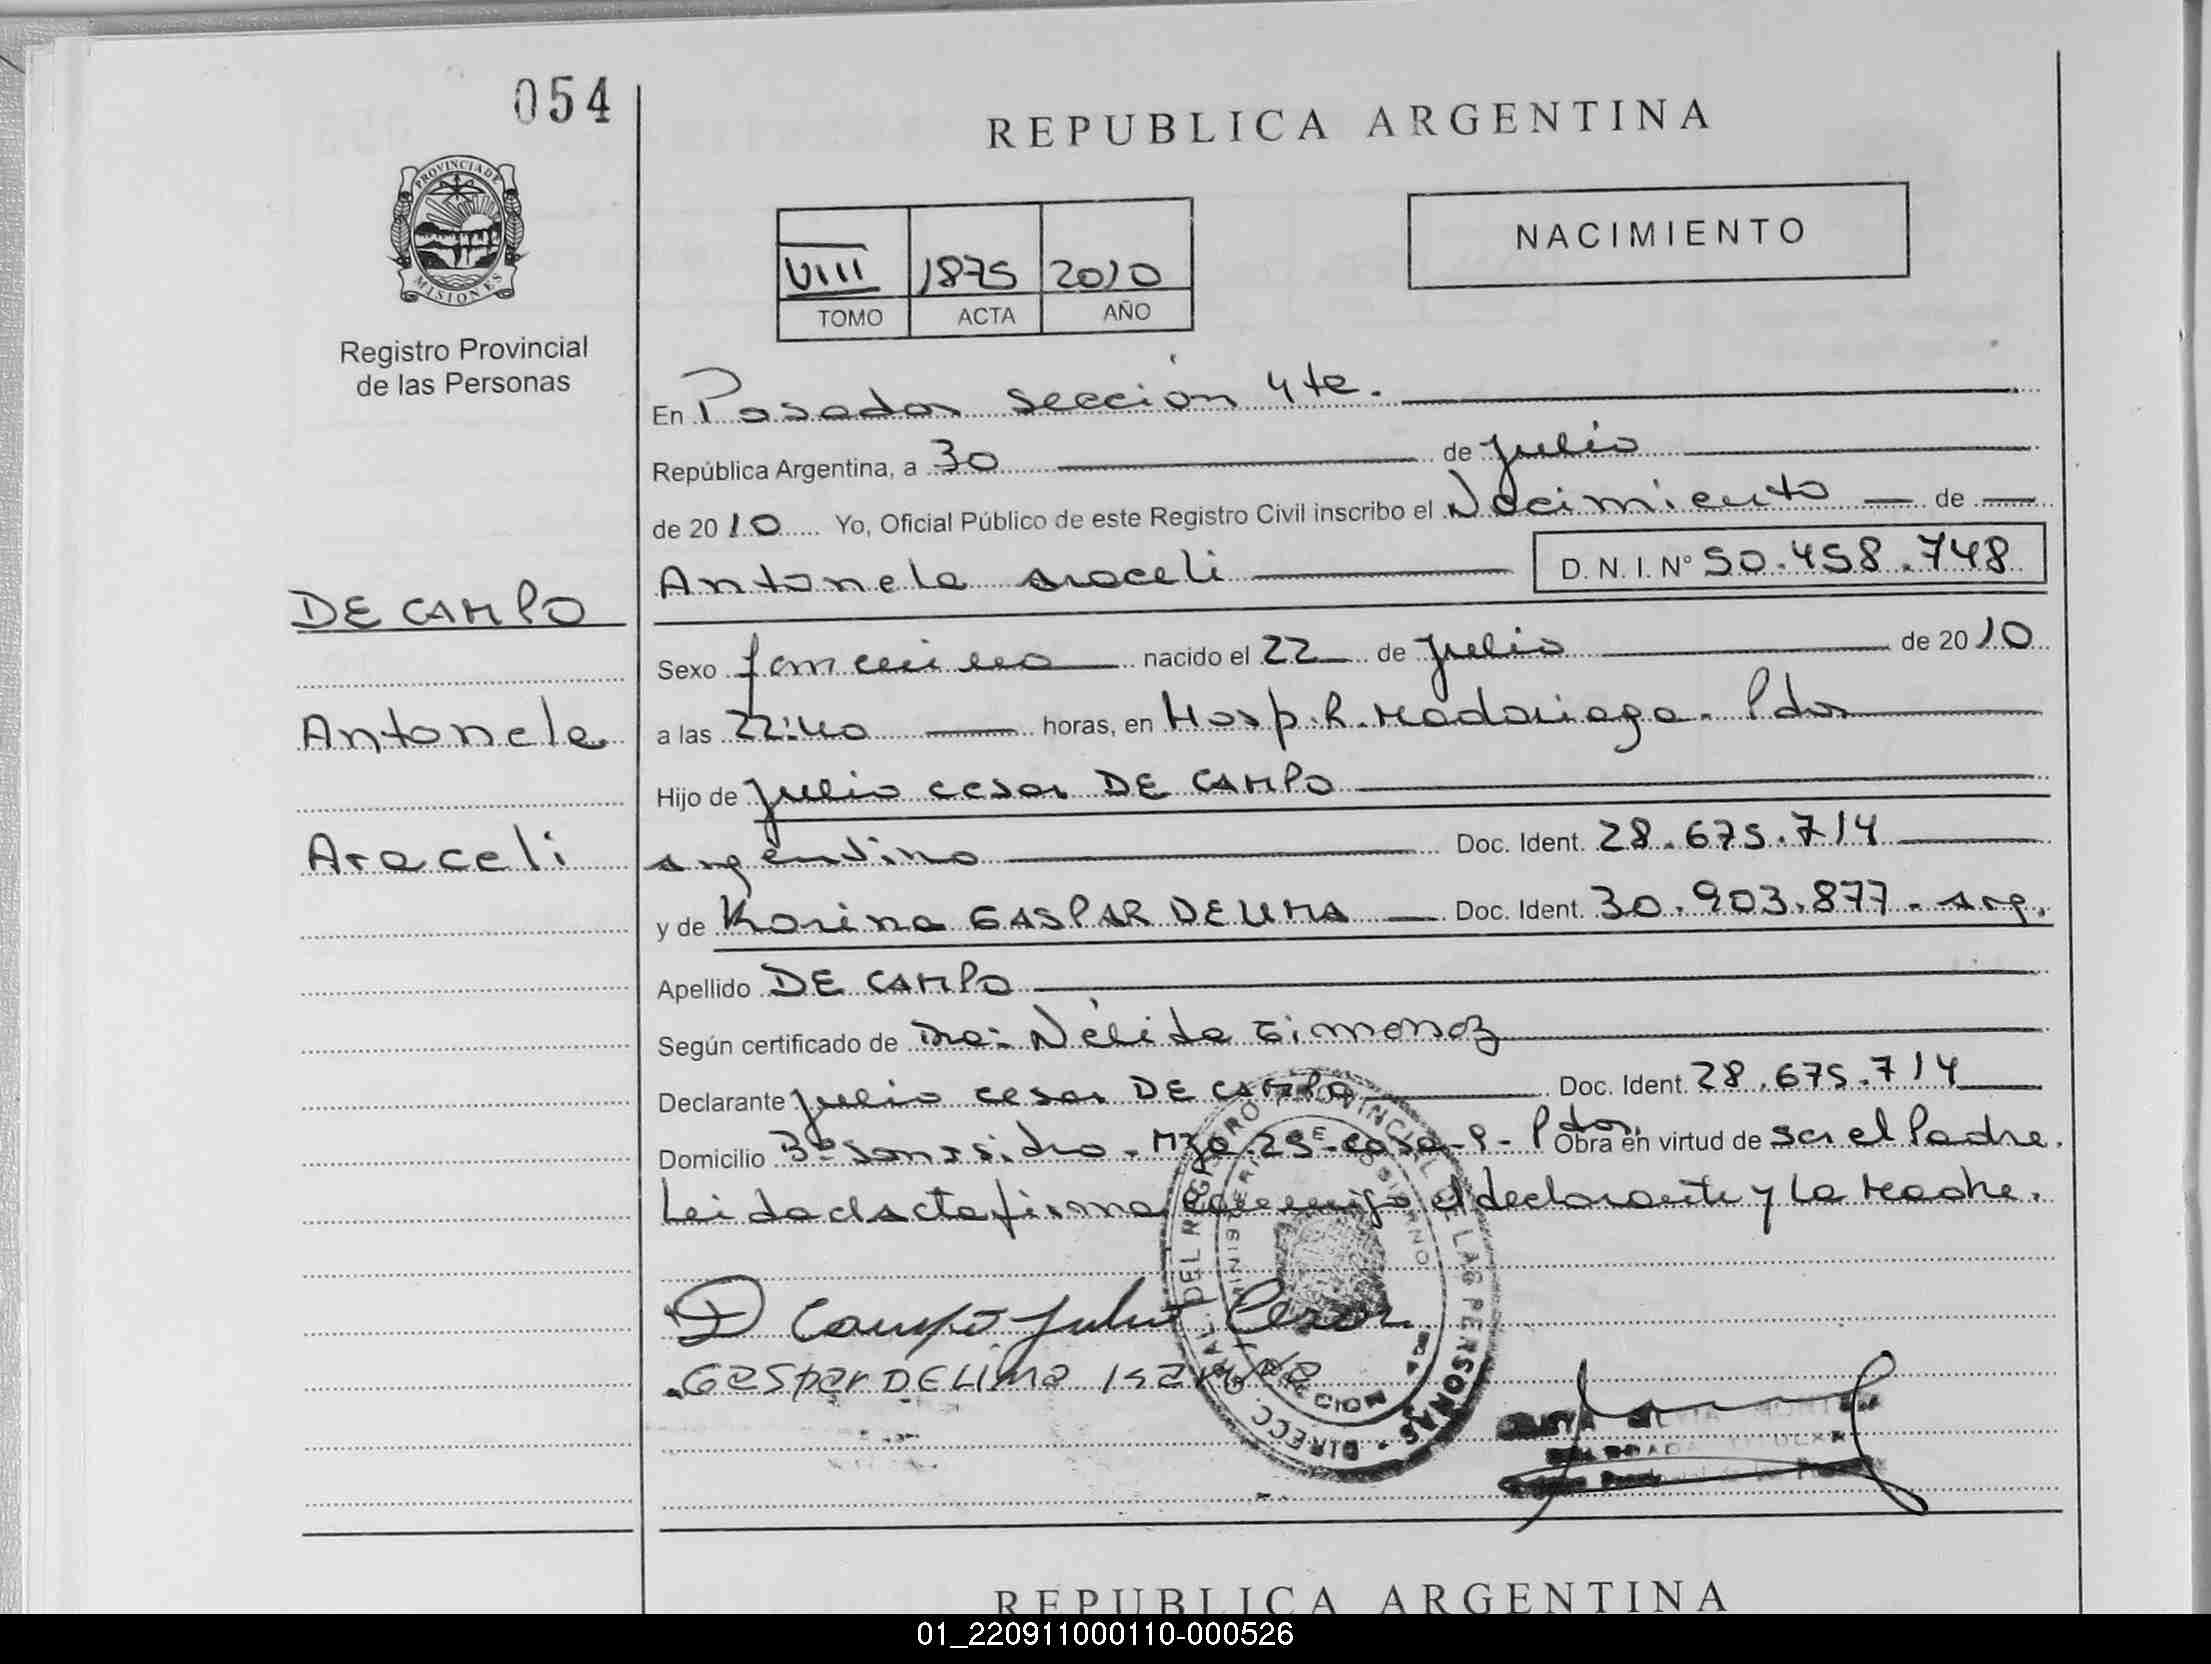 054
REPUBLICA ARGENTINA
PROVINCIA DE
MISIONES
Registro Provincial
de las Personas
VIII 1875 2010
TOMO ACTA AÑO
NACIMIENTO
En Posadas sección 4ta.
República Argentina, a 30 de julio
de 2010 Yo, Oficial Público de este Registro Civil inscribo el Nacimiento de
Antonela Araceli D.N.I. Nº 50.458.748
DE CAMPO
Antonela
Araceli
Sexo femenino nacido el 22 de julio de 2010
a las 22:40 horas, en Hosp. R. Madariaga. Pdas
Hijo de Julio Cesar DE CAMPO
argentino Doc. Ident. 28.675.714
y de Karina GASPAR DE LIMA Doc. Ident. 30.903.877 - arg.
Apellido DE CAMPO
Según certificado de Dra: Nélida Gimenez
Declarante Julio Cesar DE CAMPO Doc. Ident. 28.675.714
Domicilio Bº San Isidro - Mza. 25 - casa - 9 - Pdas. Obra en virtud de ser el Padre.
Leida el acta firma conmigo el declarante y la Madre.
D Campo Julio Cesar
Gaspar DE Lima Karina
DIRECC. GRAL. DEL REGISTRO PROVINCIAL DE LAS PERSONAS
MINISTERIO DE GOBIERNO
REPUBLICA ARGENTINA
01_220911000110-000526